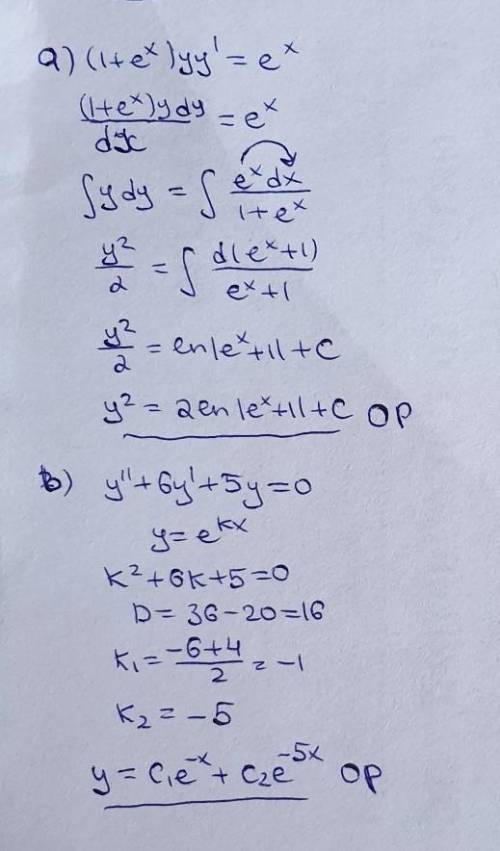 a) (1+e^x)yy' = e^x
(1+e^x)ydy/dx = e^x
∫ydy = ∫ e^xdx/1+e^x
y²/2 = ∫ d(e^x+1)/e^x+1
y²/2 = ln|e^x+1|+C
y² = 2ln|e^x+1|+C OP
b) y''+6y'+5y=0
y=e^kx
K²+6K+5=0
D= 36-20=16
K₁= -6+4/2 = -1
K₂ = -5
y = C₁e^-x + C₂e^-5x OP